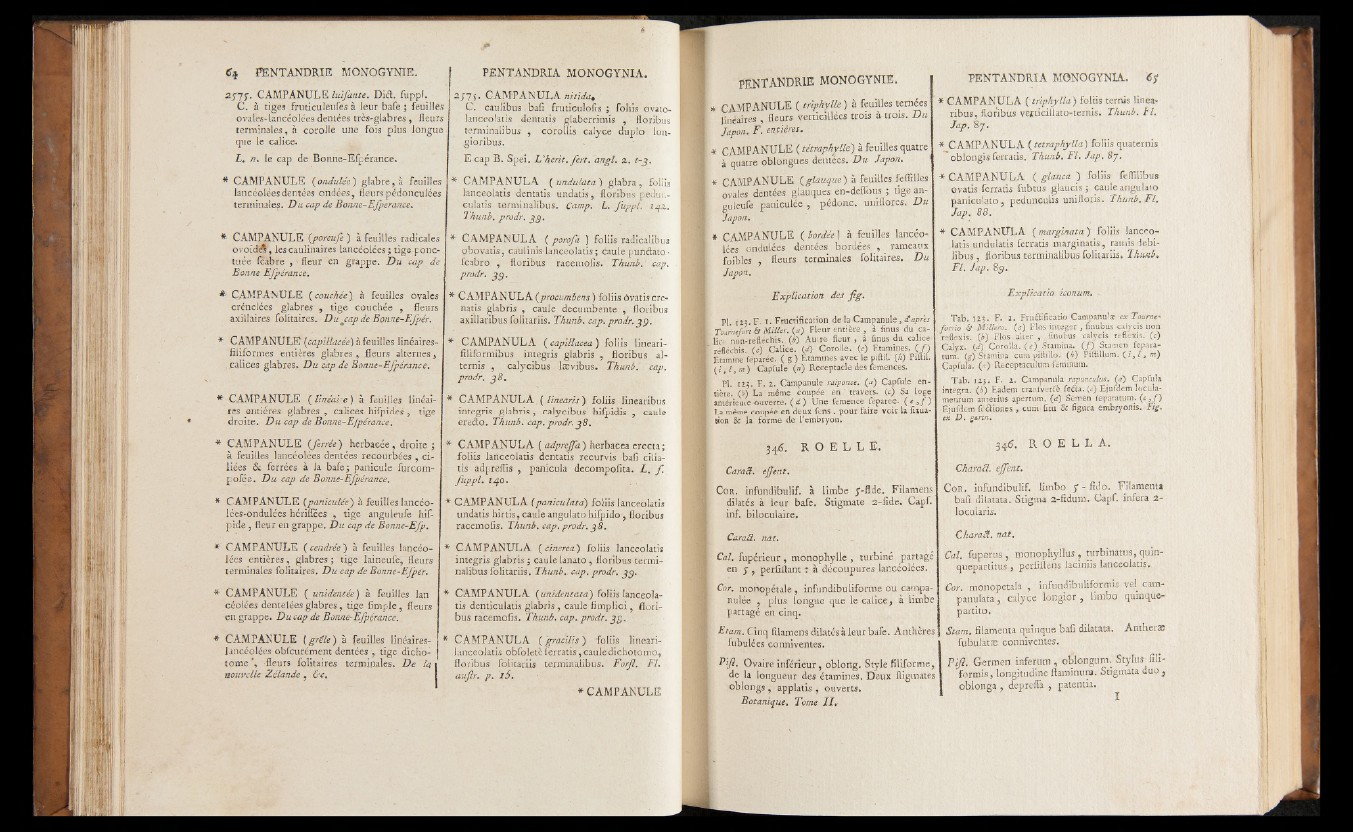 64 PENTANDRIE MONOGYNIE.
2575. CAMPANULE luisante. Dict. suppl.
C. à tiges fruticuleuses à leur base ; feuilles
ovales-lancéolées dentées très-glabres, fleurs
terminales, à corolle une fois plus longue
que le calice.
L. n. le cap de Bonne-Espérance.
* CAMPANULE (ondulée) glabre, à feuilles
lancéolées dentées ondées, fleurs pédonculées
terminales. Du cap de Bonne-Espérance.
* CAMPANULE (poreuse) à feuilles radicales
ovoïdes, les caulinaires lancéolées ; tige ponc-
tuée scabre, fleur en grappe. Du cap de
Bonne Espérance.
* CAMPANULE (couchée) à feuilles ovales
crénelées glabres, tige couchée, fleurs
axillaires solitaires. Du cap de Bonne-Espér.
* CAMPANULE (capillacée) à feuilles linéaires-
filiformes entières glabres, fleurs alternes,
calices glabres. Du cap de Bonne-Espérance.
* CAMPANULE (linéaire) à feuilles linéai-
res entières glabres, calices hispides, tige
droite. Du cap de Bonne-Espérance.
* CAMPANULE (serrée) herbacée, droite ;
à feuilles lancéolées dentées recourbées, ci-
liées & serrées à la base ; panicule surcom-
posée. Du cap de Bonne-Espérance.
* CAMPANULE (paniculée) à feuilles lancéo-
lées-ondulées hérissées, tige anguleuse his-
pide, fleur en grappe. Du cap de Bonne-Esp.
* CAMPANULE (cendrée) à feuilles lancéo-
lées entières, glabres ; tige laineuse, fleurs
terminales solitaires. Du cap de Bonne-Esper.
* CAMPANULE (unidentée) à feuilles lan
céolées dentelées glabres, tige simple, fleurs
en grappe. Du cap de Bonne-Espérance.
* CAMPANULE (grêle) à feuilles linéaires-
lancéolées obscurément dentées, tige dicho-
tome, fleurs solitaires terminales. De la
nouvelle Zélande, &c.
PENTANDRIA MONOGYNIA.
2575. CAMPANULA nitida.
C. caulibus basi fruticulosis ; foliis ovato-
lanceolatis dentatis glaberrimis, floribus
terminalibus, corollis calyce duplo lon-
gioribus.
E cap B. Spei. L'herit. sert. angl. 2. t-3.
* CAMPANULA (undulata) glabra, foliis
lanceolatis dentatis undatis, floribus pedun-
culatis terminalibus. Camp. L. suppl. 142.
Thunb. prodr. 39.
* CAMPANULA (porosa) foliis radicalibus
obovatis, caulinis lanceolatis ; caule punctato-
scabro, floribus racemosis. Thunb. cap.
prodr. 39.
* CAMPANULA (procumbens) foliis ovatis cre-
natis glabris, caule decumbente, floribus
axillaribus solitariis. Thunb. cap. prodr. 39.
* CAMPANULA (capillacea) foliis lineari-
filiformibus integris glabris, floribus al-
ternis, calycibus lævibus. Thunb. cap.
prodr. 38.
* CAMPANULA (linearis) foliis linearibus
integris glabris, calycibus hispidis, caule
erecto. Thunb. cap. prodr. 38.
* CAMPANULA (adpressa) herbacea erecta ;
foliis lanceolatis dentatis recurvis basi cilia-
tis adpressis, panicula decomposita. L. f.
suppl. 140.
* CAMPANULA (paniculata) foliis lanceolatis
undatis hirtis, caule angulato hispido, floribus
racemosis. Thunb. cap. prodr. 38.
* CAMPANULA (cinerea) foliis lanceolatis
integris glabris ; caule lanato, floribus termi-
nalibus solitariis. Thunb. cap. prodr. 39.
* CAMPANULA (unidentata) foliis lanceola-
tis denticulatis glabris, caule simplici, flori-
bus racemosis. Thunb. cap. prodr. 39.
* CAMPANULA (gracilis) foliis lineari-
lanceolatis obsoletè serratis, caule dichotomo,
floribus solitariis terminalibus. Forst. Fl.
austr. p. 16.
* CAMPANULE
PENTANDRIE MONOGYNIE.
* CAMPANULE (triphylle) à feuilles ternées
linéaires, fleurs verticillées trois à trois. Du
Japon. F. entières.
* CAMPANULE (tétraphylle) à feuilles quatre
à quatre oblongues dentées. Du Japon.
* CAMPANULE (glauque) à feuilles sessiles
ovales dentées glauques en-dessous ; tige an-
guleuse paniculée, pédonc. uniflores. Du
Japon.
* CAMPANULE (bordée) à feuilles lancéo-
lées ondulées dentées bordées, rameaux
foibles, fleurs terminales solitaires. Du
Japon.
Explication des fig.
Pl. 123. F. 1. Fructification de la Campanule, d'après
Tournefort & Miller. (a) Fleur entière, à sinus du ca-
lice non-réfléchis. (b) Autre fleur, à sinus du calice
réfléchis. (c) Calice. (d) Corolle. (e) Etamines. (f)
Etamine séparée. (g) Etamines avec le pistil. (h) Pistil.
(i, l, m) Capsule (n) Receptacle des semences.
Pl. 123. F. 2. Campanule raiponse. (a) Capsule en-
tière. (b) La même coupée en travers. (c) Sa loge
antérieure ouverte. (d) Une semence séparée. (e, f)
La même coupée en deux sens, pour faire voir la situa-
tion & la forme de l'embryon.
346. ROELLE.
Caract. essent.
COR. infundibulif. à limbe 5-fide. Filamens
dilatés à leur base. Stigmate 2-fide. Caps.
inf. biloculaire.
Caract. nat.
Cal. supérieur, monophylle, turbiné partagé
en 5, persistant : à découpures lancéolées.
Cor. monopétale, infundibuliforme ou campa-
nulée, plus longue que le calice, à limbe
partagé en cinq.
Etam. Cinq filamens dilatés à leur base. Anthères
subulées conniventes.
Pist. Ovaire inférieur, oblong. Style filiforme,
de la longueur des étamines. Deux stigmates
oblongs, applatis, ouverts.
Botanique. Tome II.
PENTANDRIA MONOGYNIA. 65
* CAMPANULA (triphylla) foliis ternis linea-
ribus, floribus verticillato-ternis. Thunb. Fl.
Jap. 87.
* CAMPANULA (tetraphylla) foliis quaternis
oblongis serratis. Thunb. Fl. Jap. 87.
* CAMPANULA (glauca) foliis sessilibus
ovatis serratis subtus glaucis ; caule angulato
paniculato, pedunculis unifloris. Thunb. Fl.
Jap. 88.
* CAMPANULA (marginata) foliis lanceo-
latis undulatis serratis marginatis, ramis debi-
libus, floribus terminalibus solitariis. Thunb.
Fl. Jap. 89.
Explicatio iconum.
Tab. 123. F. 2. Fructificatio Campanulæ ex Tourne-
fortio & Millero. (a) Flos integer, sinubus calycis non
reflexis. (b) Flos alter, sinubus calycis reflexis. (c)
Calyx. (d) Corolla. (e) Stamina. (f) Stamen separa-
tum. (g) Stamina cum pistillo. (h) Pistillum. (i, l, m)
Capsula. (n) Receptaculum seminum.
Tab. 123. F. 2. Campanula rapunculus. (a) Capsula
integra. (b) Eadem transversè secta. (c) Ejusdem locula-
mentum anterius apertum. (d) Semen separatum. (e, f)
Ejusdem sectiones, cum situ & figura embryonis. Fig.
ex D. gærtn.
346. ROELLA.
Charact. essent.
COR. infundibulif. limbo 5-fido. Filamenta
basi dilatata. Stigma 2-fidum. Caps. infera 2-
locularis.
Charact. nat.
Cal. superus, monophyllus, turbinatus, quin-
quepartitus, persistens laciniis lanceolatis.
Cor. monopetala, infundibuliformis vel cam-
panulata, calyce longior, limbo quinque-
partito.
Stam. filamenta quinque basi dilatata. Antheræ
subulatæ conniventes.
Pist. Germen inferum, oblongum. Stylus fili-
formis, longitudine staminum. Stigmata duo,
oblonga, depressa, patentia.
I